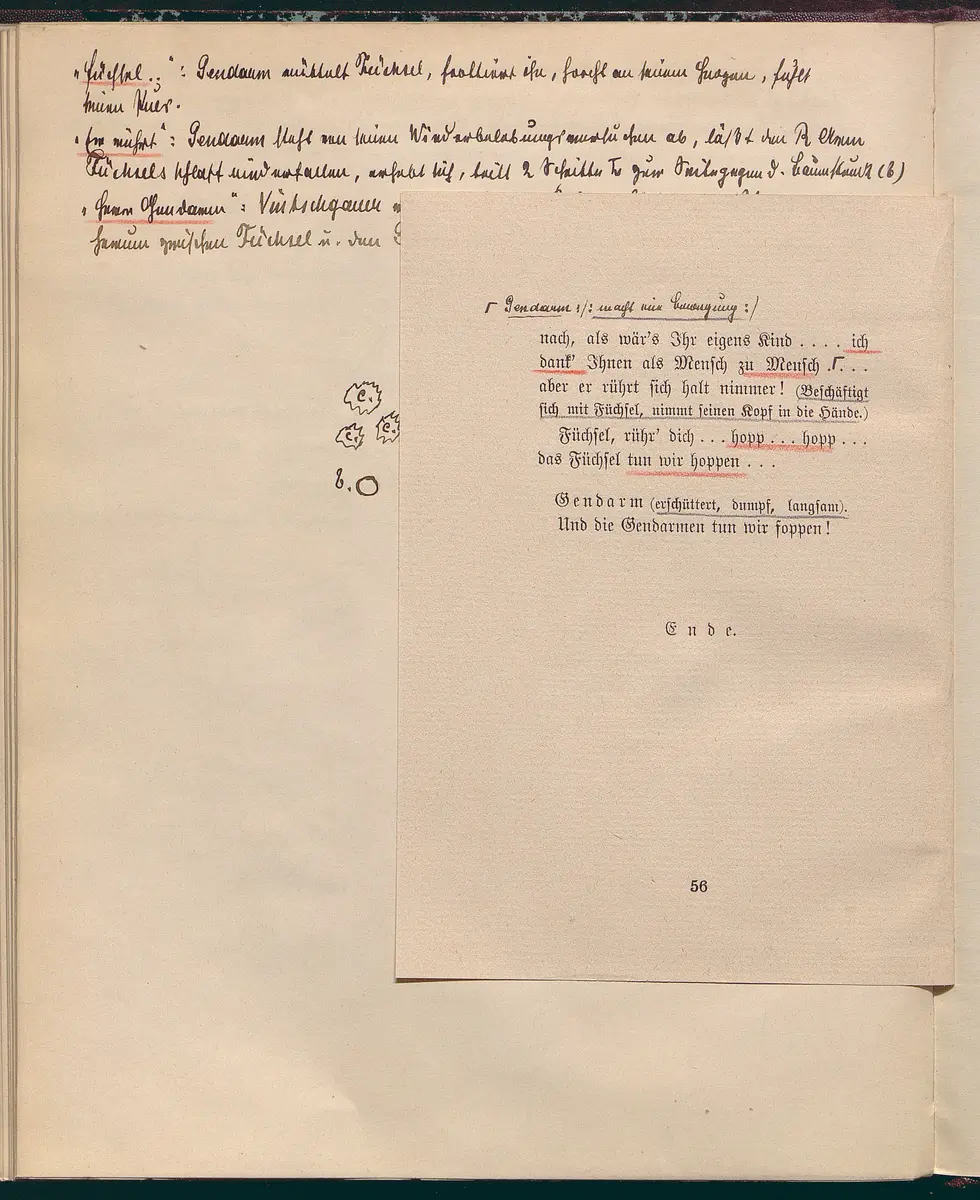 „Füchsel..": Gendarm rüttelt Füchsel, frottiert ihn, horcht an seinem Herzen, fühlt
seinen Puls.
„Er rührt": Gendarm steht von seinen Wiederbelebungsversuchen ab, läßt den R Arm
Füchsels schlaff niederfallen, erhebt sich, tritt 2 Schritte zur Seite gegen d. Baumstrunk (6)
„Herr Gendarm": Vintschgauer
herum zwischen Füchsel u. den
Γ Gendarm :/: macht eine Bewegung :/
nach, als wär's Ihr eigens Kind .... ich
dank' Ihnen als Mensch zu Mensch Γ...
aber er rührt sich halt nimmer! (Beschäftigt
sich mit Füchsel, nimmt seinen Kopf in die Hände.)
Füchsel, rühr' dich ... hopp ... hopp ...
das Füchsel tun wir hoppen ...
C.
C. C.
8.
Gendarm (erschüttert, dumpf, langsam).
Und die Gendarmen tun wir foppen!
Ende.
56